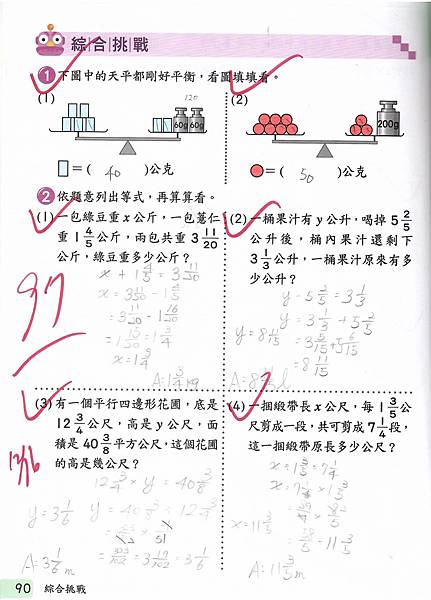 綜合挑戰
1 下圖中的天平都剛好平衡，看圖填填看。
(1)
120
60g 60g
=( 40 )公克
(2)
200g
=( 50 )公克
2 依題意列出等式，再算算看。
(1)一包綠豆重x公斤，一包薏仁
重1 4/5 公斤，兩包共重3 11/20
公斤，綠豆重多少公斤？
(2)一桶果汁有y公升，喝掉5 2/5
公升後，桶內果汁還剩下
3 1/3 公升，一桶果汁原來有多
少公升？
y - 5 2/5 = 3 1/3
y = 3 1/3 + 5 2/5
y = 8 11/15
= 8 11/15
97
(3)有一個平行四邊形花圃，底是
12 3/4 公尺，高是y公尺，面
積是40 3/8 平方公尺，這個花圃
的高是幾公尺？
12 3/4 × y = 40 3/8
y = 3 1/6
A: 3 1/6 m
12/16
(4)一捆緞帶長x公尺，每1 3/5 公
尺剪成一段，共可剪成7 1/4 段，
這一捆緞帶原長多少公尺？
x ÷ 1 3/5 = 7 1/4
x = 7 1/4 × 1 3/5
x = 11 3/5
= 11 3/5
A: 11 3/5 m
90 綜合挑戰